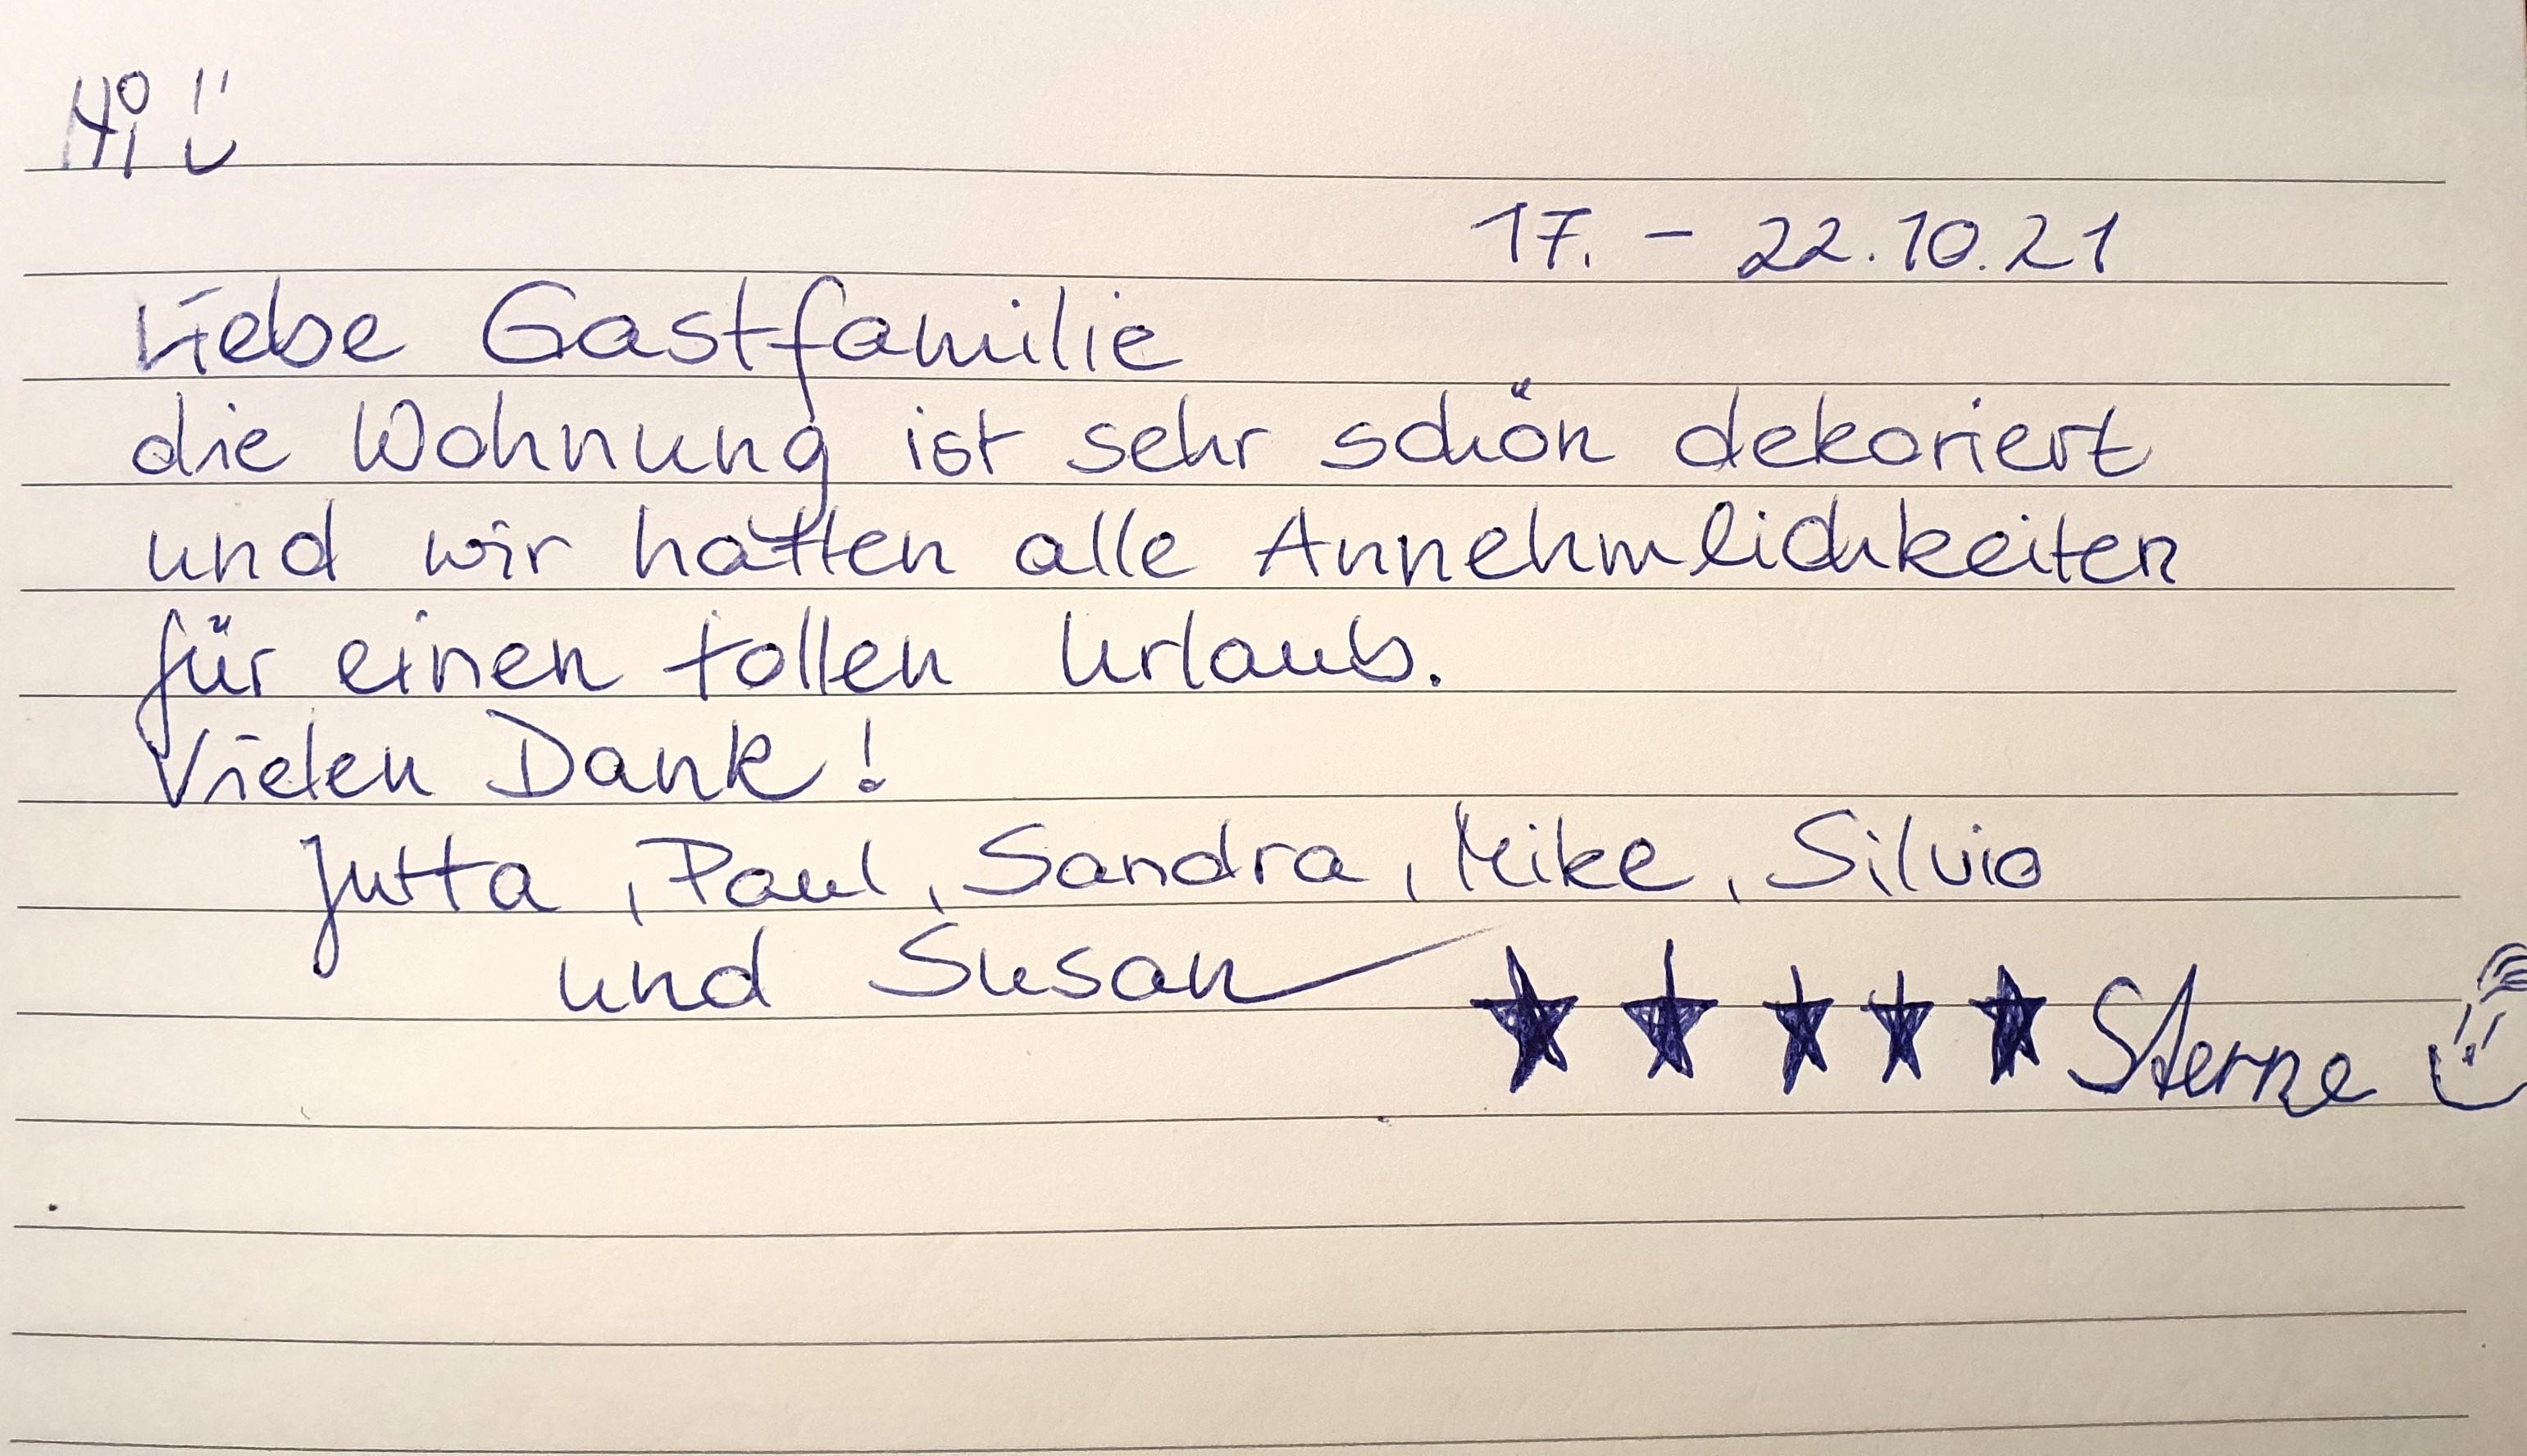 Hi
17. - 22.10.21
Liebe Gastfamilie
die Wohnung ist sehr schön dekoriert
und wir hatten alle Annehmlichkeiten
für einen tollen Urlaub.
Vielen Dank!
Jutta, Paul, Sandra, Mike, Silvio
und Susan
★ ★ ★ ★ ★ Sterne